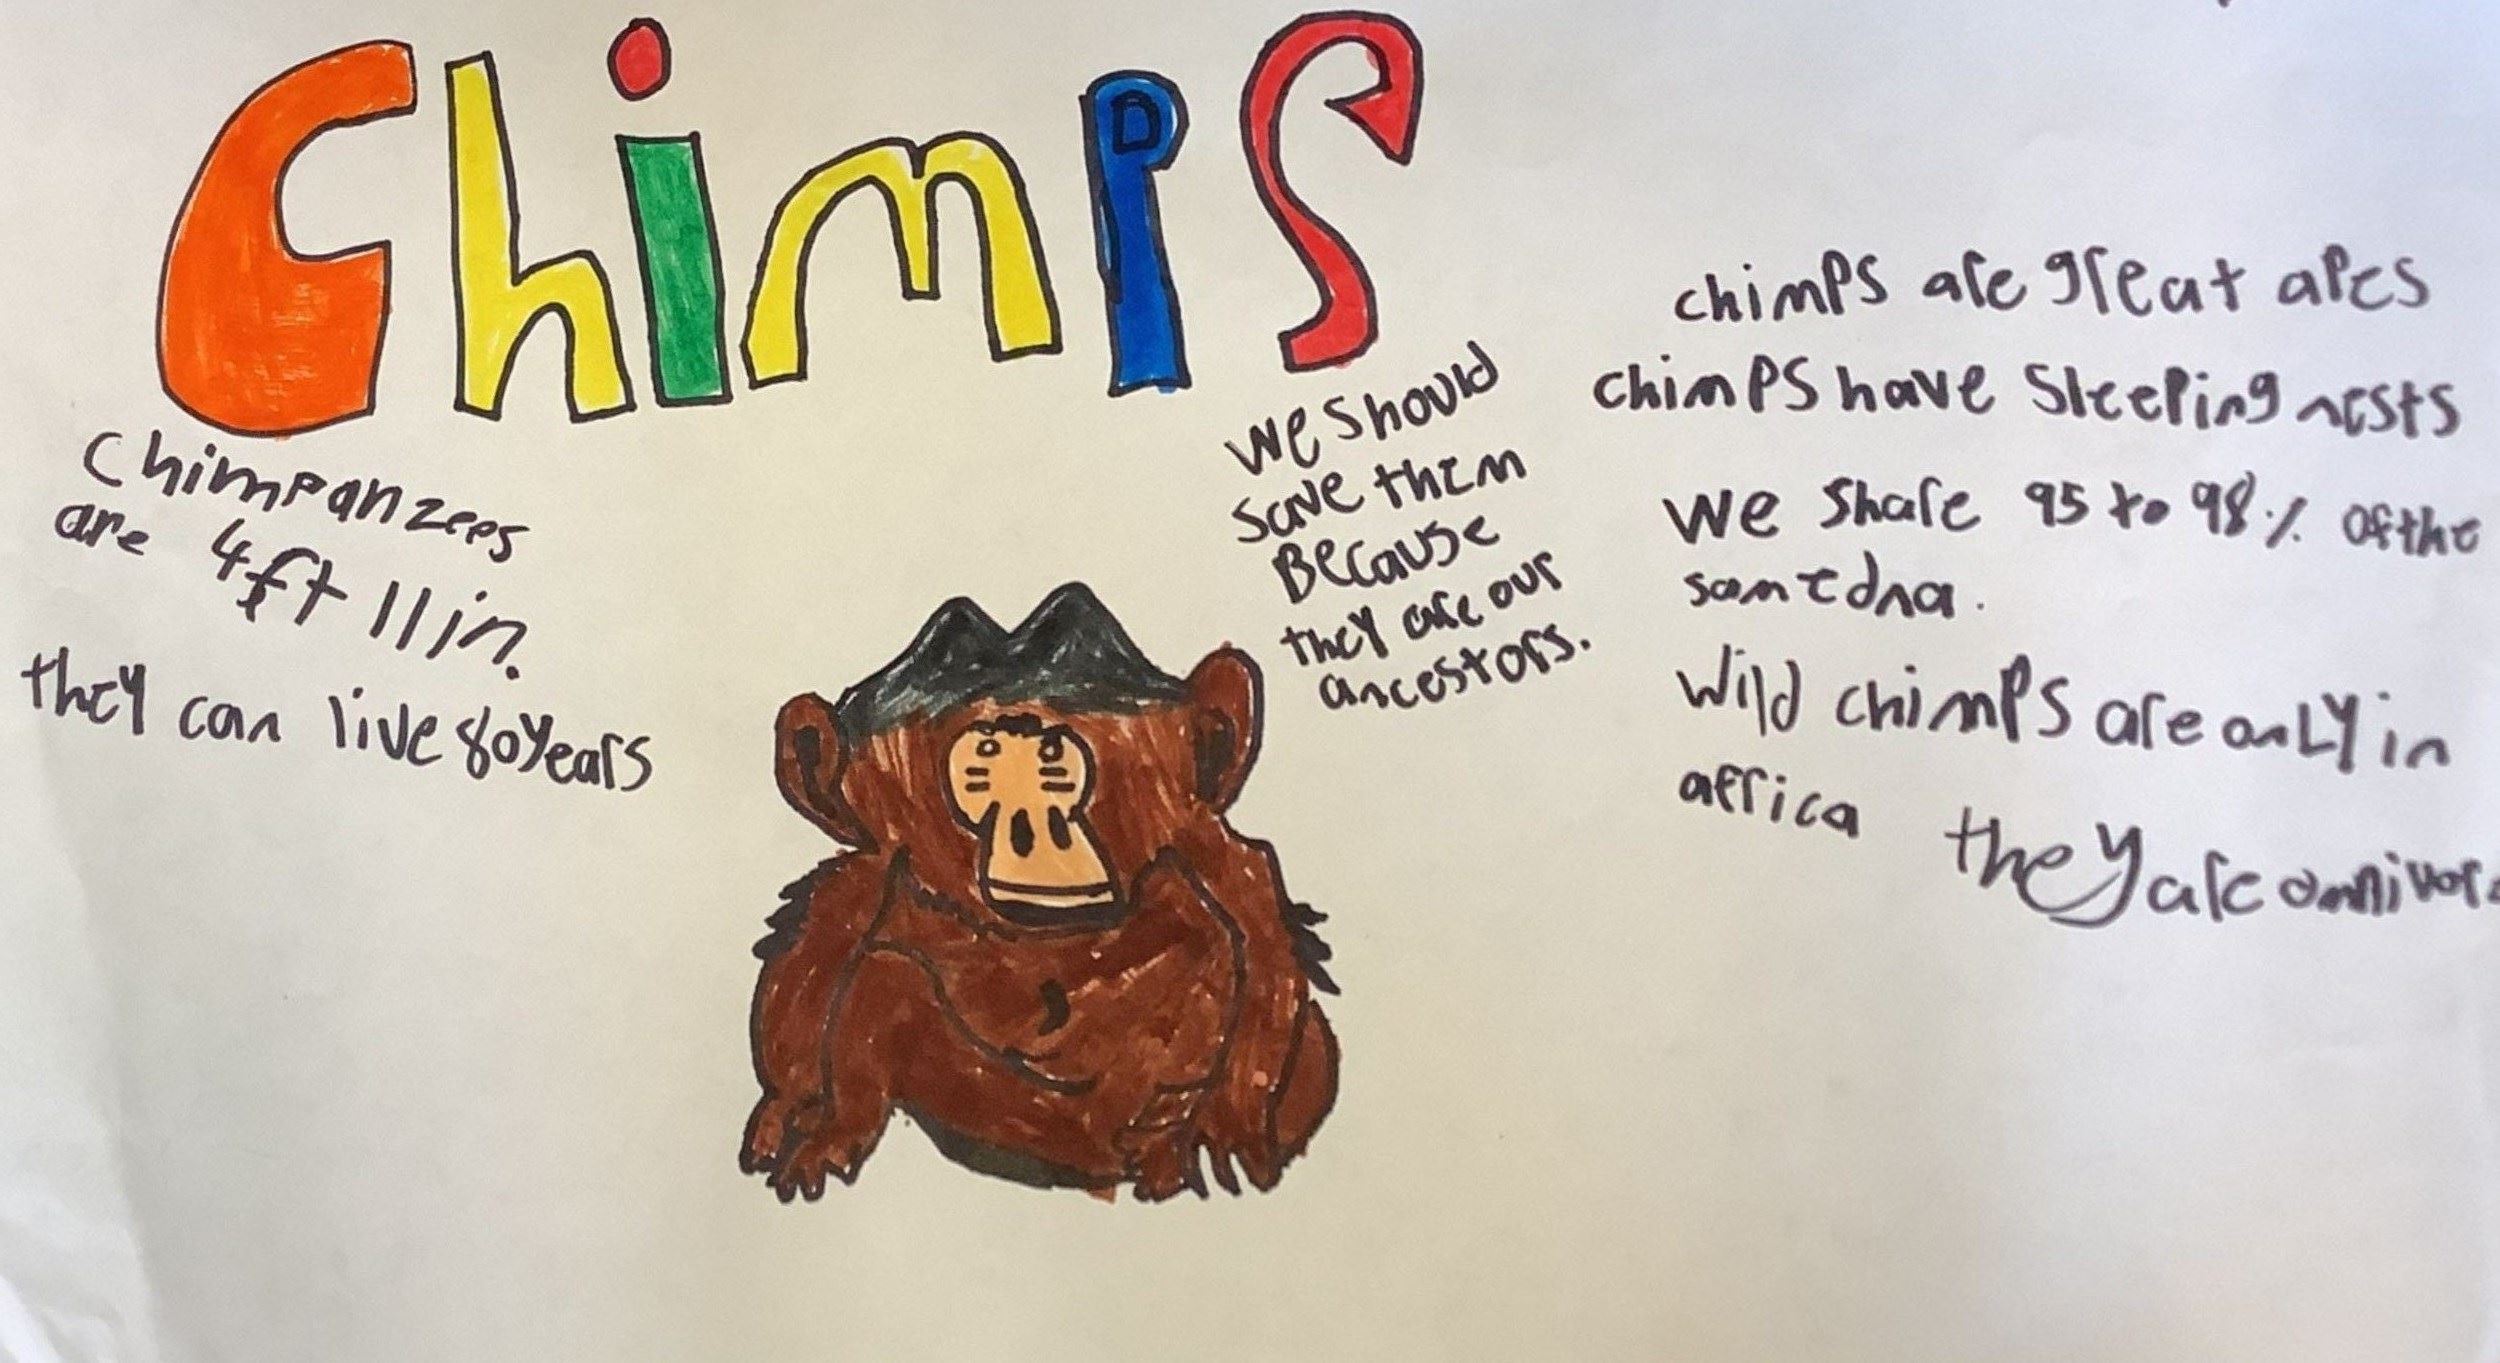 Chimps
Chimpanzees
are 4ft 11in.
they can live 80years
we should
save them
Because
they are our
ancestors.
chimps are great apes
chimps have sleeping nests
we share 95 to 98% of the
same dna.
wild chimps are only in
africa they are omnivor